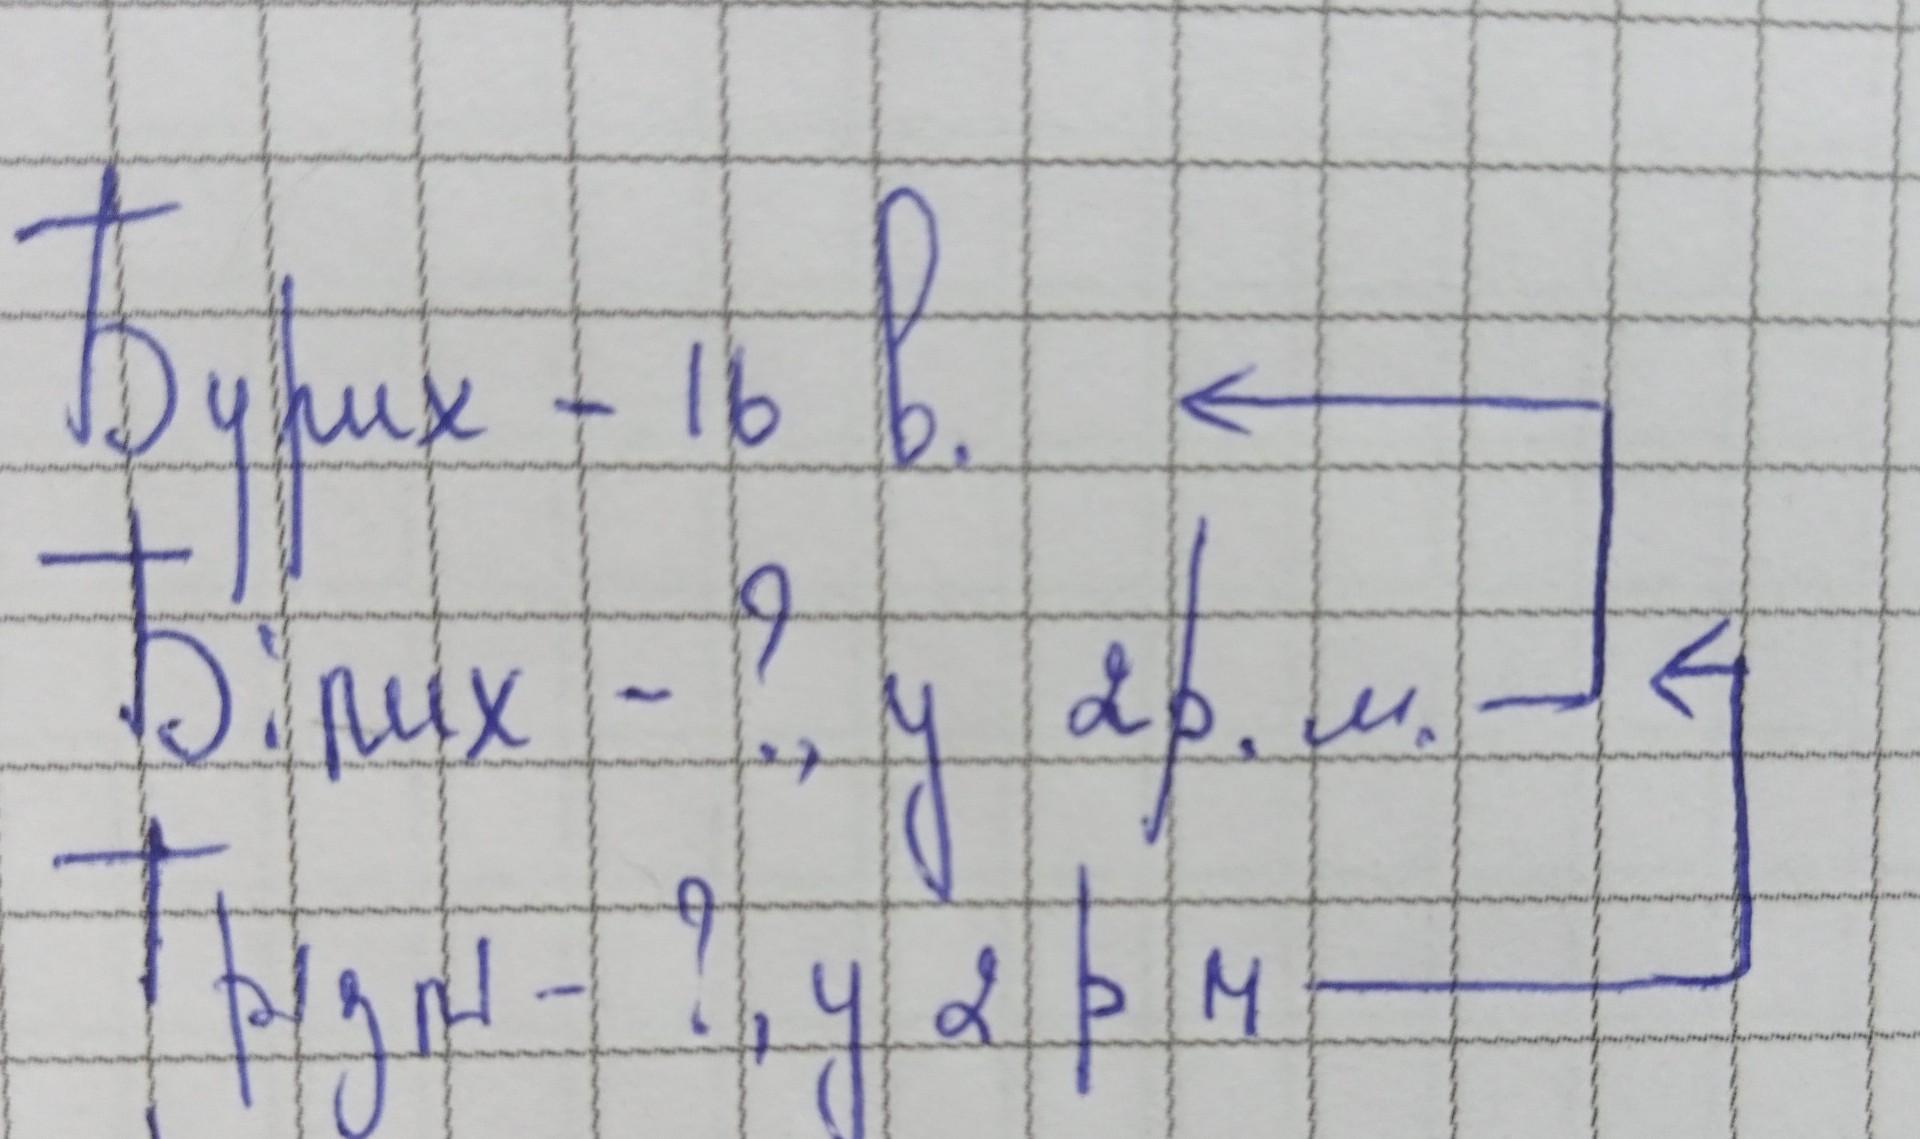 Бурих - 16 в.
Білих - ?, у 2р. м.
- ?, у 2 р м